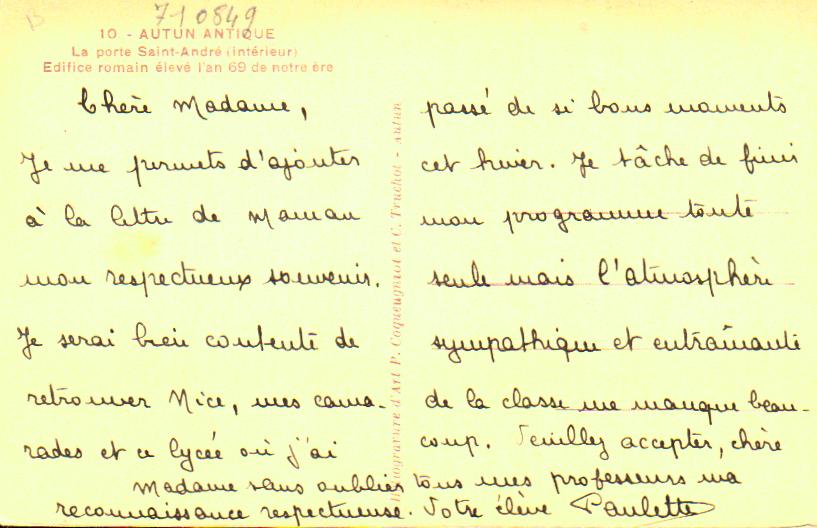 710849
10 - AUTUN ANTIQUE
La porte Saint-André (intérieur)
Edifice romain élevé l'an 69 de notre ère
Chère Madame,
Je me permets d'ajouter
à la lettre de Maman
mon respectueux souvenir.
Je serai bien contente de
retrouver Nice, mes cama-
rades et ce lycée où j'ai
passé de si bons moments
cet hiver. Je tâche de finir
mon programme toute
seule mais l'atmosphère
sympathique et entraînante
de la classe me manque beau-
coup. Veuillez accepter, chère
Madame sans oublier tous mes professeurs ma
reconnaissance respectueuse. Votre élève Paulette
d'Art P. Coqueugniot et C. Truchot - Autun